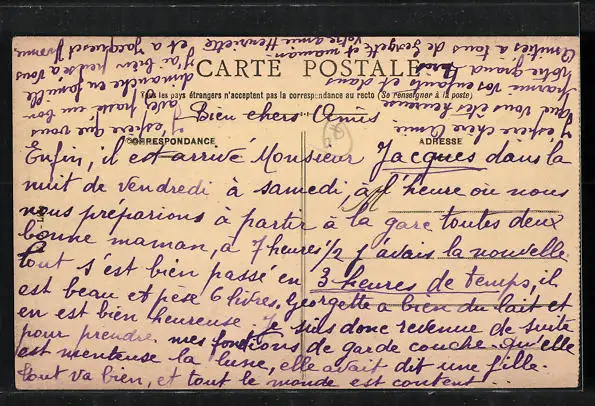 CARTE POSTALE
Tous les pays étrangers n'acceptent pas la correspondance au recto (Se renseigner à la poste)
CORRESPONDANCE
ADRESSE
Bien chers Amis
Enfin, il est arrivé Monsieur Jacques dans la
nuit de vendredi à samedi, à l'heure où nous
nous préparions à partir à la gare toutes deux
bonne maman, à 7 heures 1/2 j'avais la nouvelle.
tout s'est bien passé en 3 heures de temps, il
est beau et pèse 6 livres, Georgette a bien du lait et
en est bien heureuse. Je suis donc revenue de suite
pour prendre mes fonctions de garde couche. qu'elle
est menteuse la lune, elle avait dit une fille.
tout va bien, et tout le monde est content...
J'espère chère Amie
que vous êtes heureuse
parmi vos enfants et dans
votre grand Paris
J'espère que vous
avez passé un bon
dimanche en famille
j'ai bien pensé à vous
et à Jacques et
Amitiés à tous de Georgette et maman
votre amie Henriette